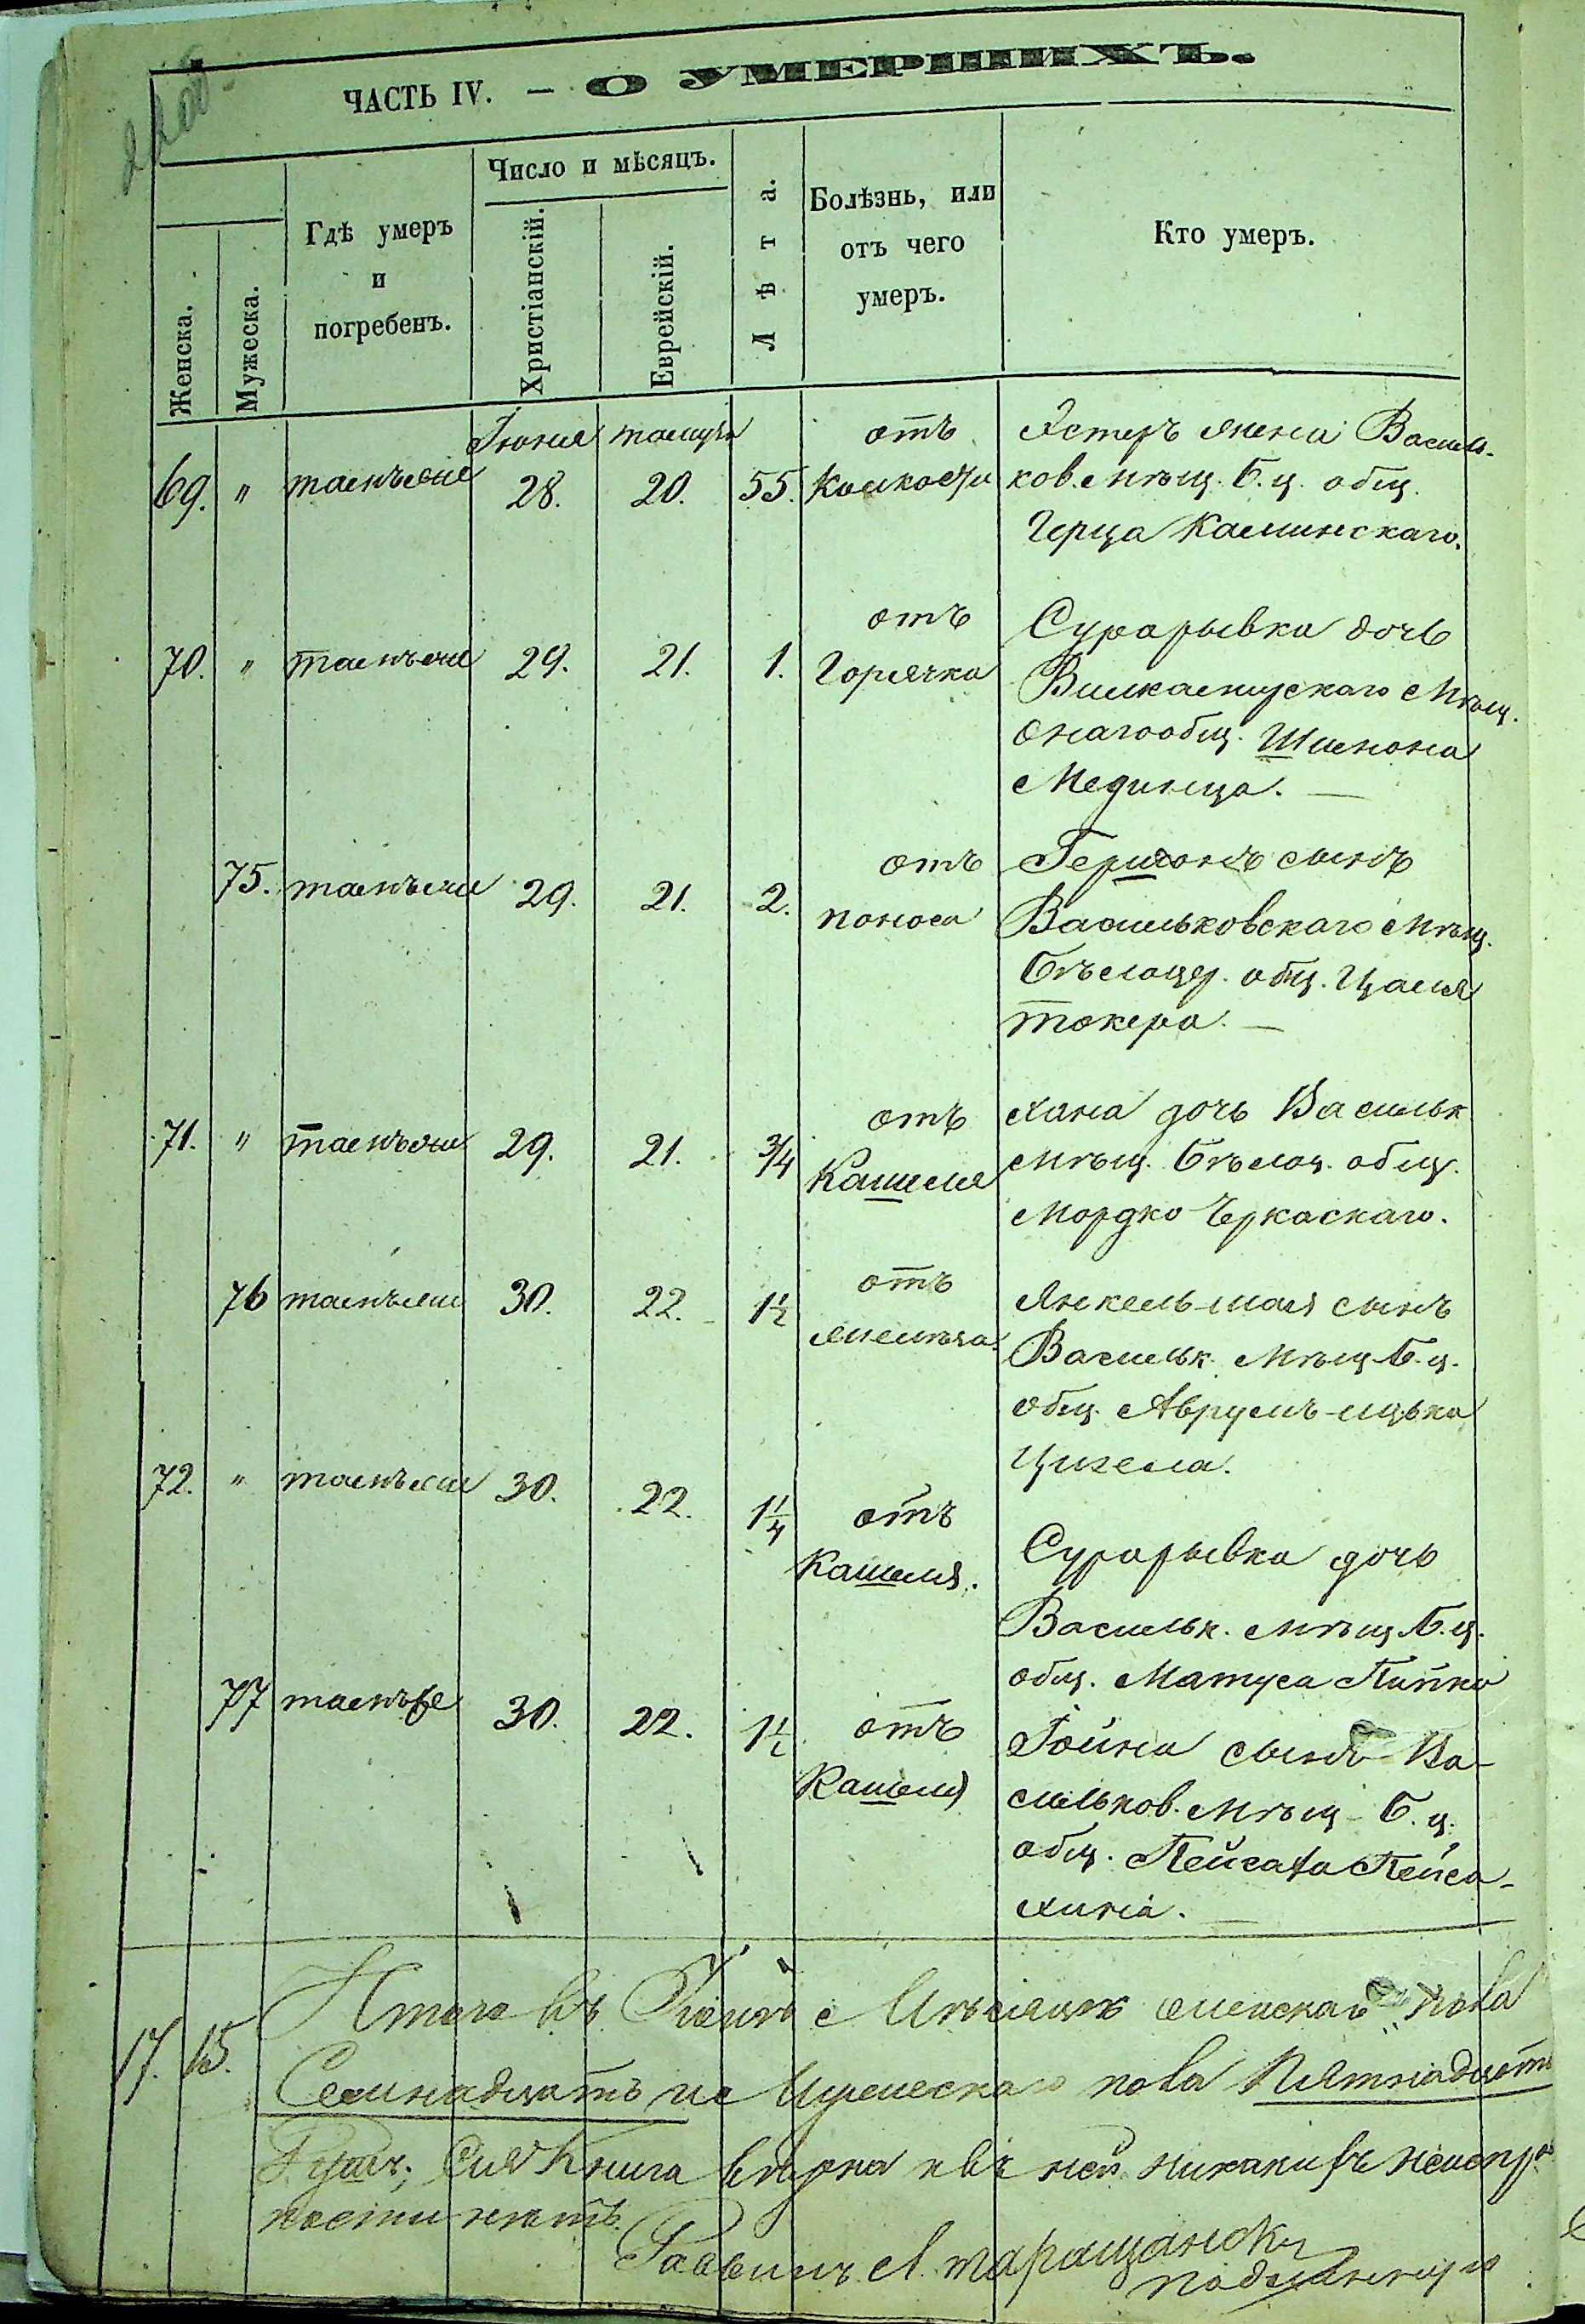 ЧАСТЬ IV. — О УМЕРШИХЪ.
Женска.
Мужеска.
Гдѣ умеръ
и
погребенъ.
Число и мѣсяцъ.
Христіанскій.
Еврейскій.
Лѣта.
Болѣзнь, или
отъ чего
умеръ.
Кто умеръ.
Іюня
69. " тамъже 28. 20. 55. отъ
Эстеръ жена Василь-
ков. мѣщ. Б. ц. общ.
Герца Каминскаго.
70. " тамъже 29. 21. 1. отъ Горячка
Сурарывка дочь
мѣщ.
онаго общ. Шимона
Мединца. —
75. тамъже 29. 21. 2. отъ поноса
Гершонъ сынъ
Васильковскаго мѣщ.
Бѣлоцер. общ. Цаля
Токера. —
71. " тамъже 29. 21. 3/4 отъ Кашеля
Хана дочь Васильк
мѣщ. Бѣлоц. общ.
Мордко Черкаскаго.
76 тамъже 30. 22. 1½ отъ
Янкель-мая сынъ
Васильк. мѣщ Б. ц.
общ. Аврумъ-ицька
72. " тамъже 30. 22. 1¼ отъ Кашеля.
Сурарывка дочь
Васильк. мѣщ Б. ц.
общ. Матуса
77 тамъже 30. 22. 1½ отъ Кашеля
Іойна сынъ Ва-
сильков. мѣщ Б. ц.
общ. Пейсаха Пейса-
хина. —
17. 15. Итого въ Іюнѣ Мѣсяцѣ женскаго пола
Семнадцать и Мужескаго пола Пятнадцать
Душъ; Сія Книга вѣрна и въ ней никакихъ неиспра
ности нѣтъ.
Раввинъ Л. Таращанскі